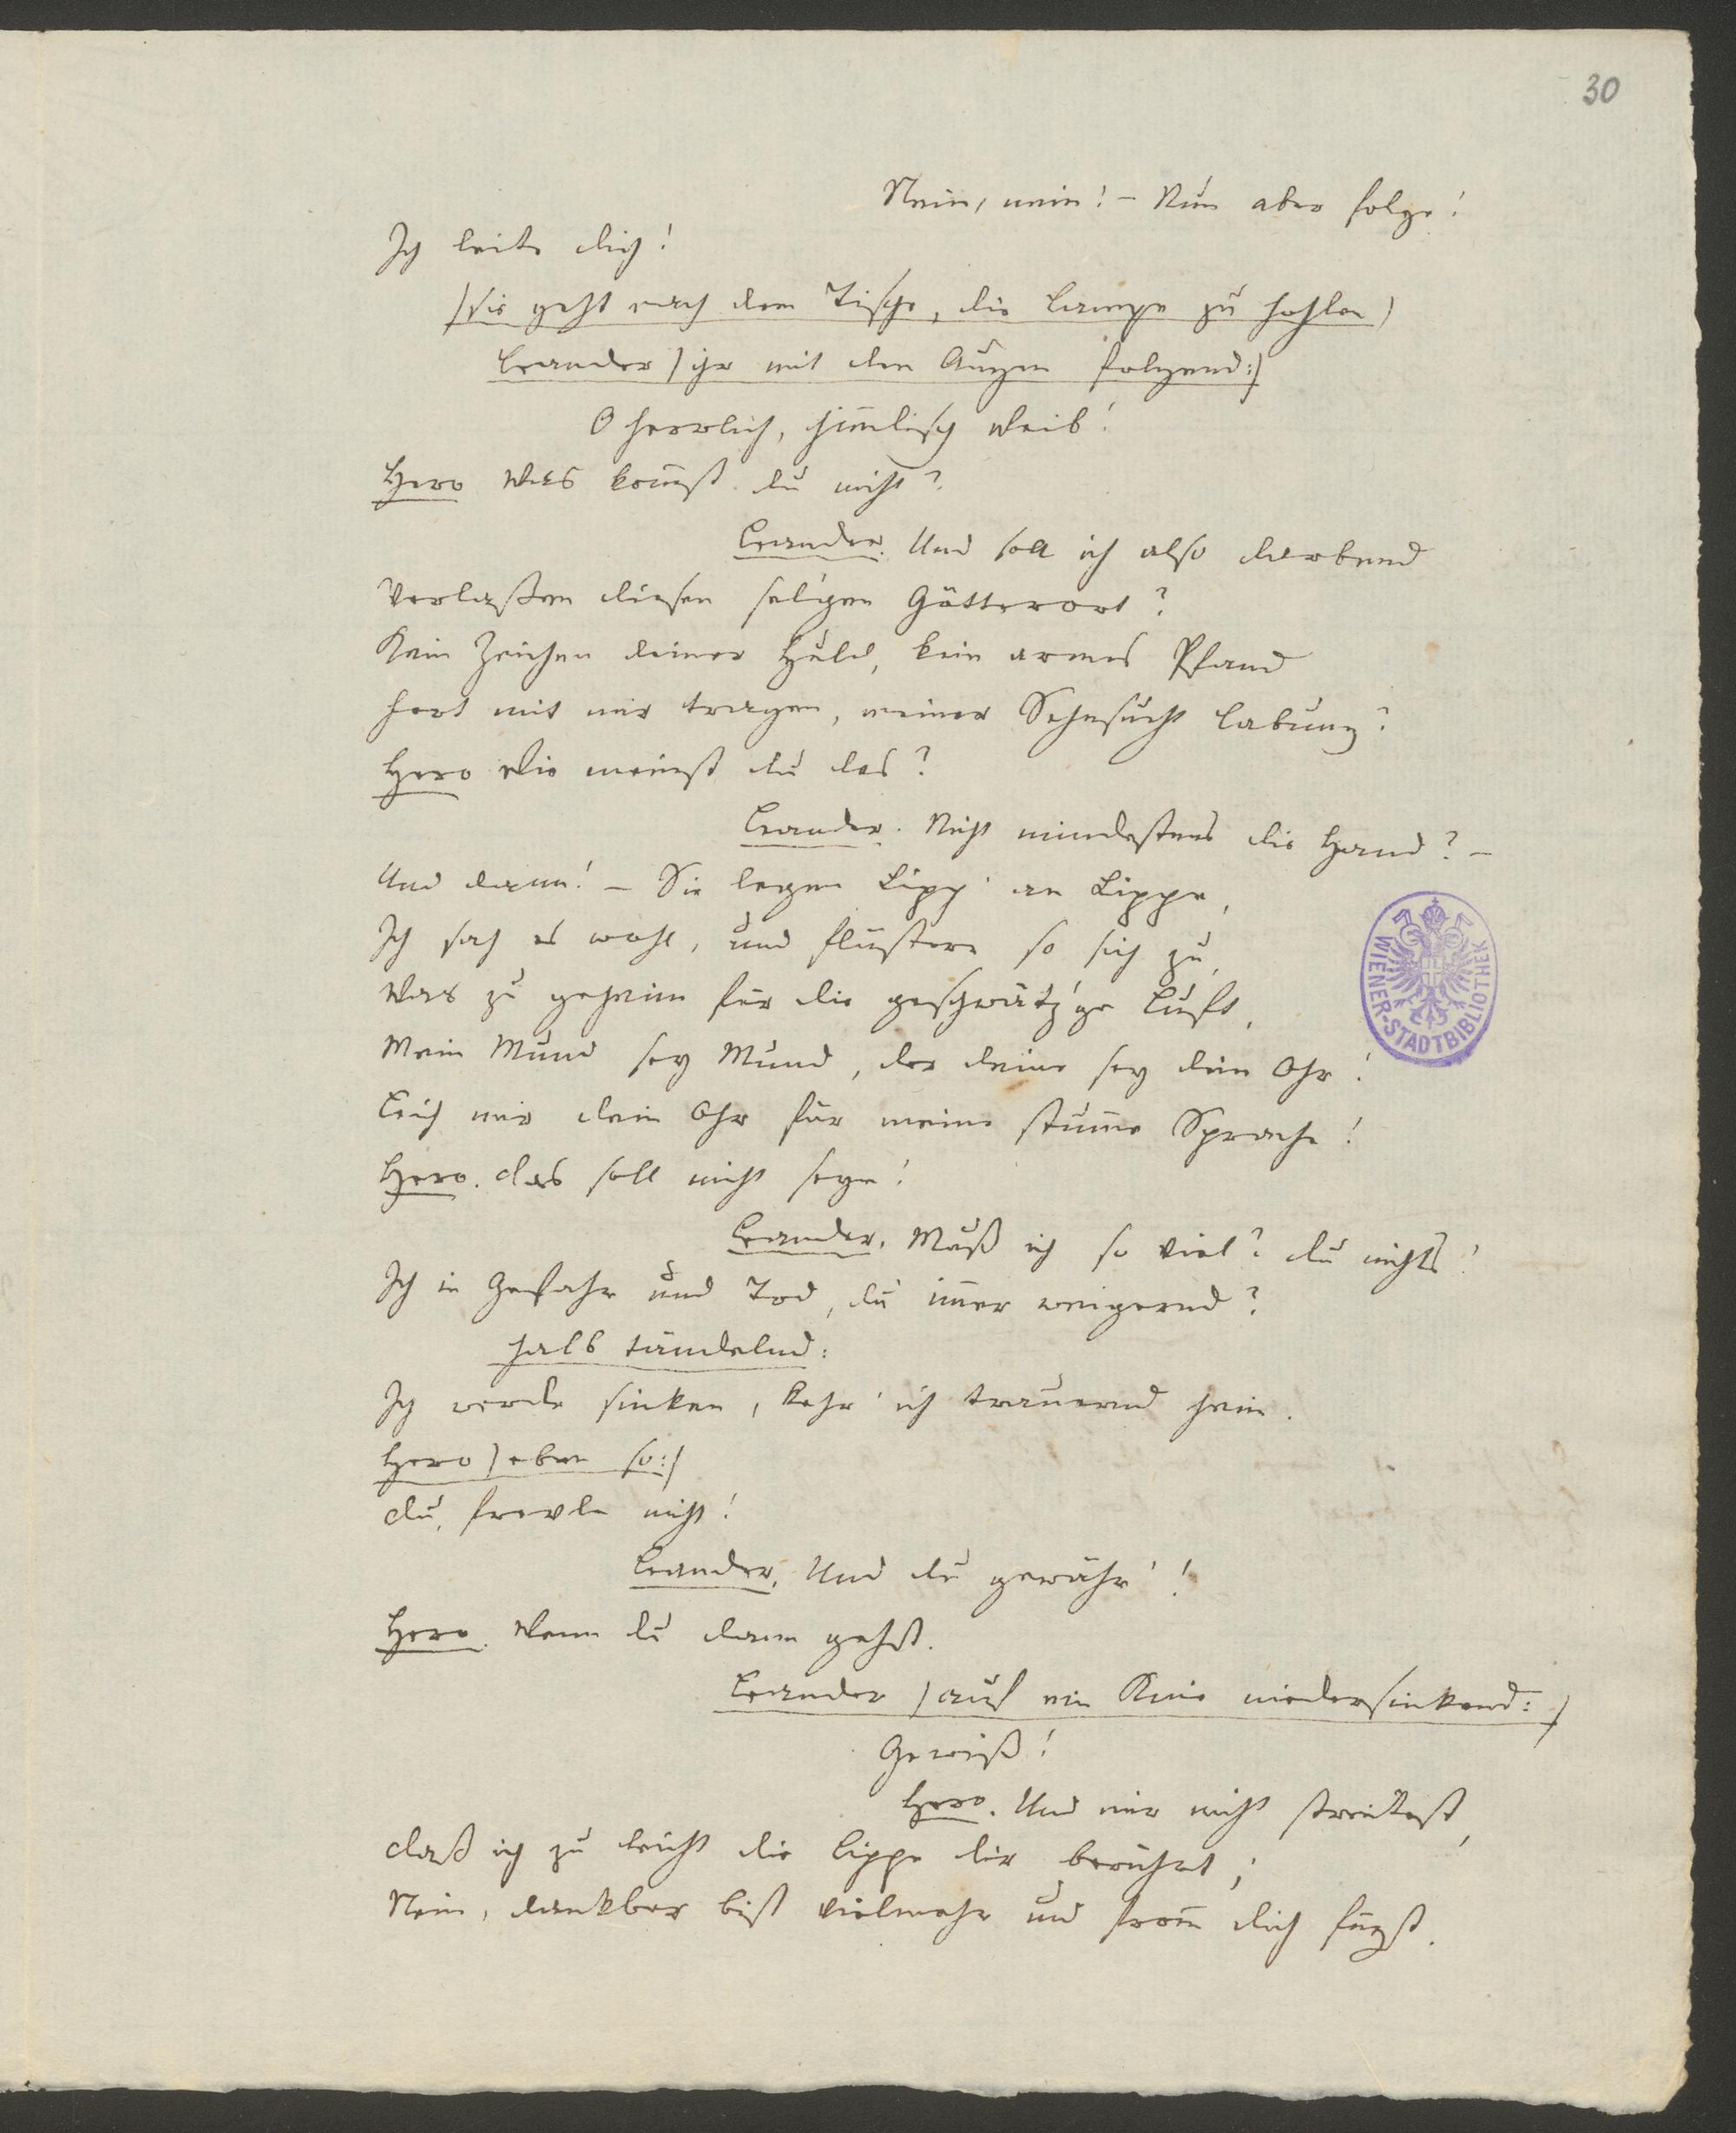 30
Nein, nein! – Nun aber folge!
Ich leite dich!
/Sie geht nach dem Tische, die Lampe zu hohlen/
Leander /ihr mit den Augen folgend:/
O herrlich, him̅lisch Weib!
Hero Was kom̅st du nicht?
Leander. Und soll ich also darbend
Verlaßen diesen sel'gen Götterort?
Kein Zeichen deiner Huld, kein armes Pfand
Fort mit mir tragen, meiner Sehnsucht Labung?
Hero Wie meinst du das?
Leander. Nicht mindestens die Hand? –
Und dann! – Sie legen Lipp' an Lippe,
Ich sah es wohl, und flüstern so sich zu,
Was zu geheim für die geschwätz'ge Luft,
Mein Mund sey Mund, der deine sey dein Ohr!
Leih mir dein Ohr für meine stum̅e Sprache!
Hero. Das soll nicht seyn!
Leander. Muß ich so viel? du nichts?
Ich in Gefahr und Tod, du im̅er weigernd?
halb tändelnd:
Ich werde sinken, kehr' ich trauernd heim.
Hero /eben so:/
Du, frevle nicht!
Leander. Und du gewähr'!
Hero. Wenn du dann gehst.
Leander /auf ein Knie niedersinkend:/
Gewiß!
Hero. Und mir nicht streitest,
Daß ich zu leicht die Lippe dir berührt;
Nein, dankbar bist vielmehr und from̅ dich fügst.
WIENER-STADTBIBLIOTHEK